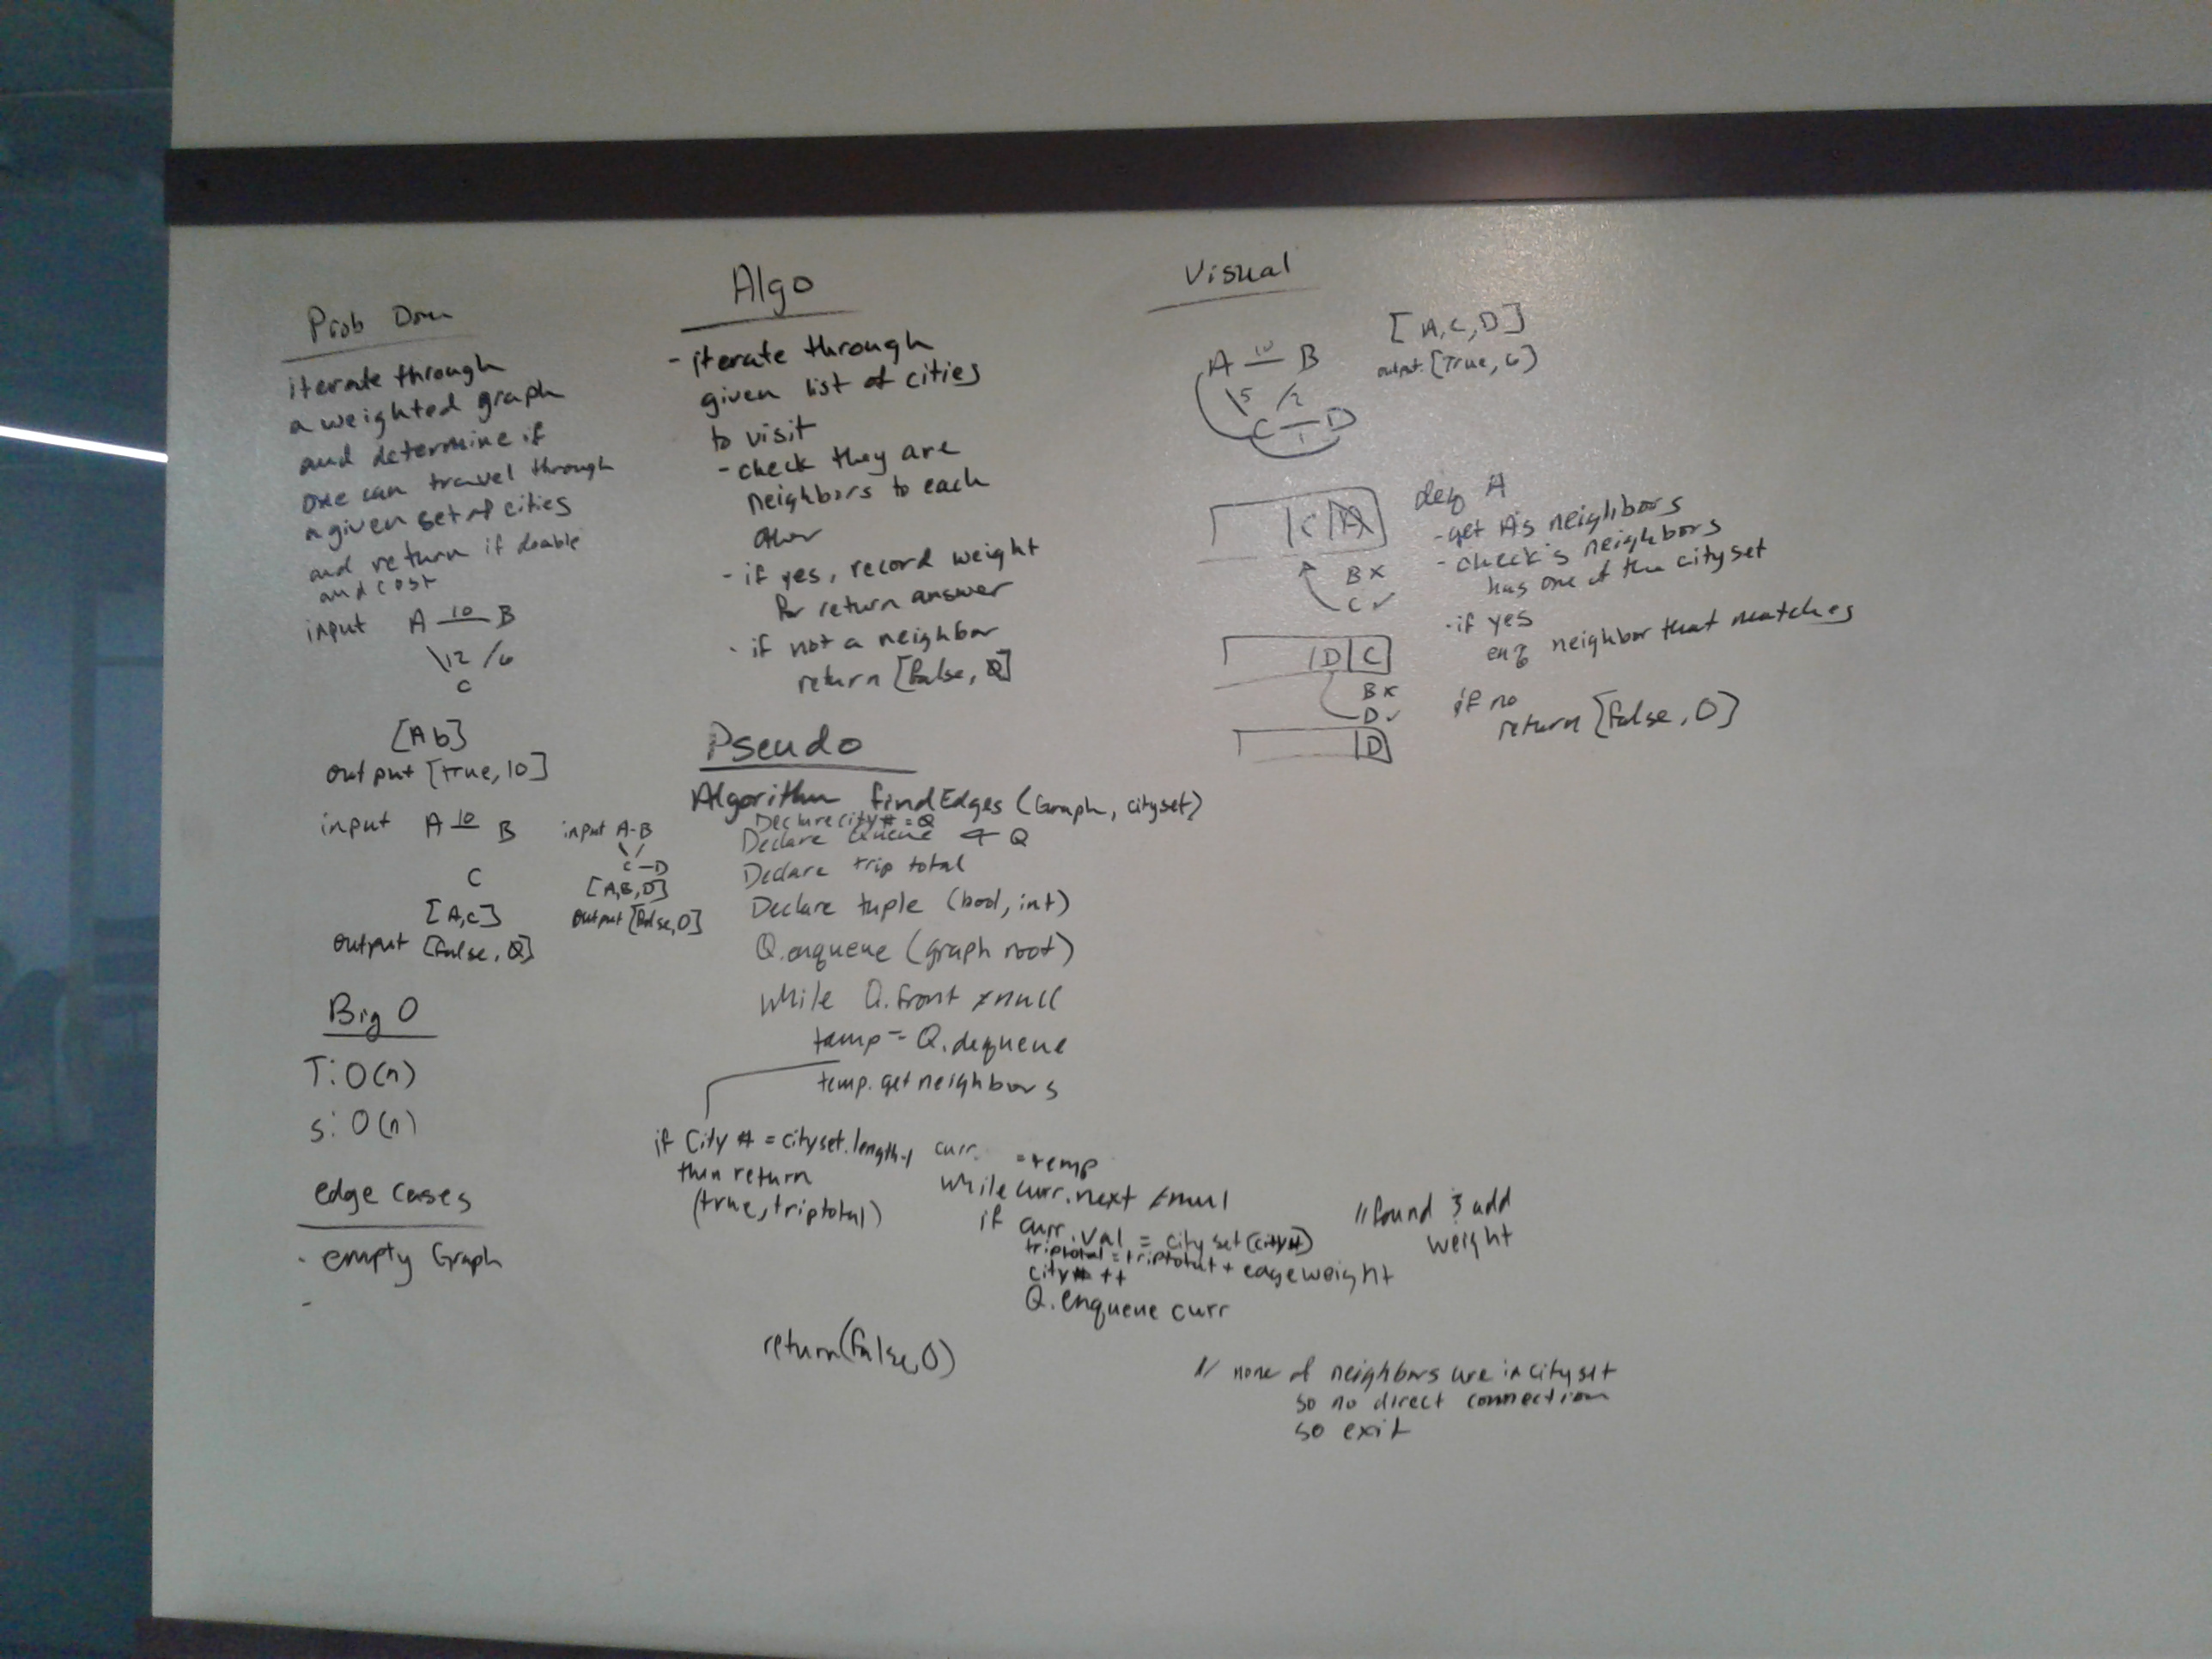 Prob Dom
iterate through
a weighted graph
and determine if
one can travel through
a given set of cities
and return if doable
and cost
input A 10 B
12 / 6
C
[Ab]
output [true, 10]
input A 10 B
C
[A,c]
output [false, 0]
input A-B
C-D
[A,B,D]
output [false, 0]
Big O
T: O(n)
S: O(n)
edge cases
- empty Graph
-
Algo
- iterate through
given list of cities
to visit
- check they are
neighbors to each
other
- if yes, record weight
for return answer
- if not a neighbor
return [false, 0]
Pseudo
Algorithm findEdges (Graph, cityset)
Declare city# = 0
Declare Queue ← Q
Declare trip total
Declare tuple (bool, int)
Q.enqueue (graph root)
while Q.front ≠ null
temp = Q.dequeue
temp.getneighbors
if City # = cityset.length-1
then return
(true, triptotal)
curr. = temp
while curr.next ≠ null
if curr.val = cityset(city#)
triptotal = triptotal + edgeweight
city# ++
Q.enqueue curr
// found & add
weight
return(false,0)
// none of neighbors are in cityset
so no direct connection
so exit
Visual
A 10 B
\5 /2
C 1 D
[A,C,D]
output: [True, 6]
C A
B x
C ✓
D C
B x
D ✓
D
deq A
- get A's neighbors
- check's neighbors
has one of the cityset
- if yes
enq neighbor that matches
if no
return [false, 0]